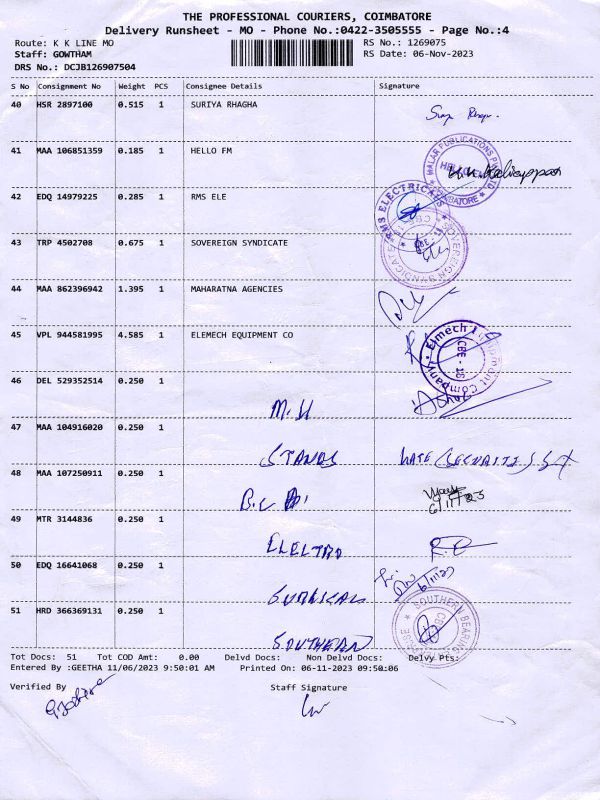 THE PROFESSIONAL COURIERS, COIMBATORE
Delivery Runsheet - MO - Phone No.:0422-3505555 - Page No.:4
Route: K K LINE MO RS No.: 1269075
Staff: GOWTHAM RS Date: 06-Nov-2023
DRS No.: DCJB126907504
S No Consignment No Weight PCS Consignee Details Signature
40 HSR 2897100 0.515 1 SURIYA RHAGHA
41 MAA 106851359 0.185 1 HELLO FM
MALAR PUBLICATIONS
COIMBATORE
42 EDQ 14979225 0.285 1 RMS ELE
RMS ELECTRICALS
43 TRP 4502708 0.675 1 SOVEREIGN SYNDICATE
SOVEREIGN SYNDICATE
44 MAA 862396942 1.395 1 MAHARATNA AGENCIES
45 VPL 944581995 4.585 1 ELEMECH EQUIPMENT CO
Elmech Equipment Company
CBE - 18
46 DEL 529352514 0.250 1 M.H
47 MAA 104916020 0.250 1 STANDS GATE (SECURITI)
48 MAA 107250911 0.250 1 B.C
6/11/23
49 MTR 3144836 0.250 1 ELECTRO
50 EDQ 16641068 0.250 1 SURGICAL
51 HRD 366369131 0.250 1 SOUTHERN
SOUTHERN BEARING
Tot Docs: 51 Tot COD Amt: 0.00 Delvd Docs: Non Delvd Docs: Delvy Pts:
Entered By :GEETHA 11/06/2023 9:50:01 AM Printed On: 06-11-2023 09:50:06
Verified By Staff Signature